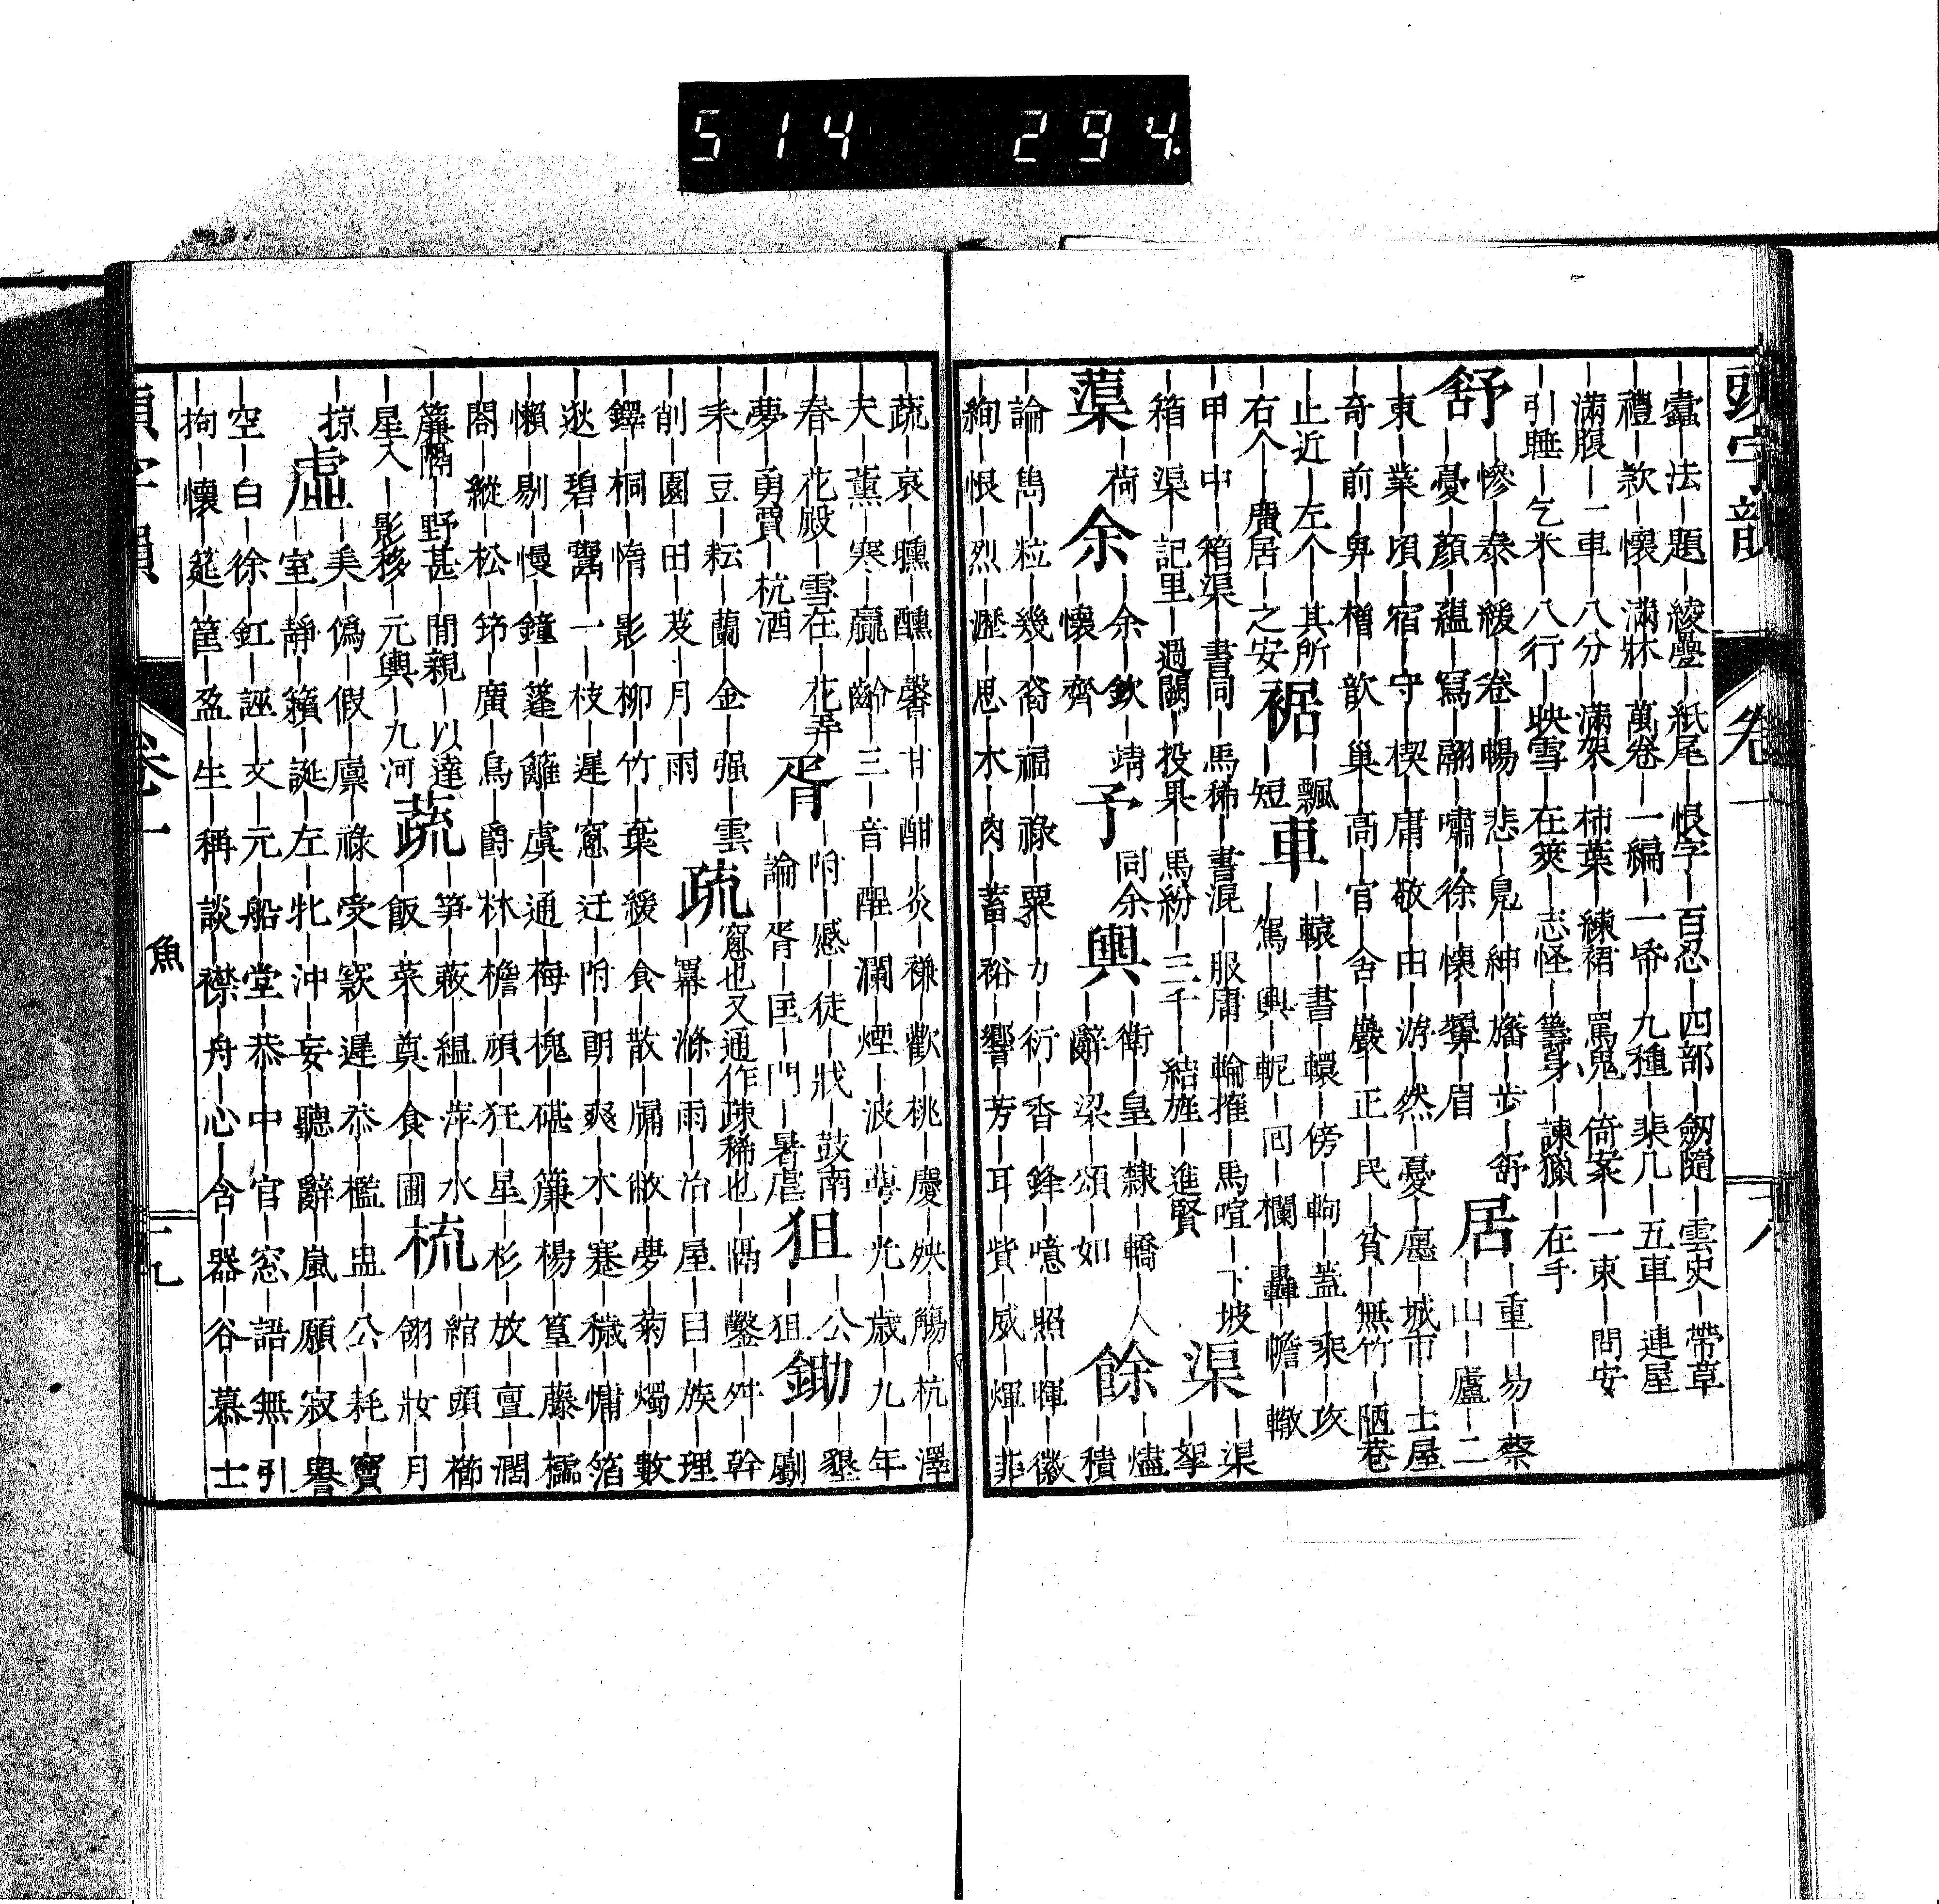 514 294
頭字韻 卷一
蠹｜法｜題｜綾疊｜紙尾｜恨字｜百忍｜四部｜劒隨｜雲史｜帶草
禮｜款｜懷｜滿牀｜萬卷｜一編｜一帋｜九種｜棐几｜五車｜連屋
滿腹｜一車｜八分｜滿架｜柿葉｜練裙｜罵鬼｜倚案｜一束｜問安
引睡｜乞米｜八行｜映雪｜在筴｜志怪｜等身｜諫獵｜在手
舒｜慘｜泰｜緩｜卷｜暢｜悲｜見｜紳｜旛｜步｜舒
｜憂｜顏｜蘊｜寫｜翮｜嘯｜徐｜懷｜翼｜眉
居｜重｜易｜蔡
｜山｜廬｜二
東｜業｜頃｜宿｜守｜楔｜庸｜敬｜由｜游｜然｜憂｜廛｜城市｜士｜屋
奇｜前｜舁｜檜｜歆｜巢｜高｜官｜舍｜巖｜正｜民｜貧｜無竹｜陋巷
止近｜左个｜其所
右个｜廣居｜之安
裾｜飄
｜短
車｜轅｜書｜轘｜傍｜軥｜蓋｜乘｜攻
｜駕｜輿｜軛｜囘｜欄｜轟｜幨｜轍
甲｜中｜箱渠｜書同｜馬稀｜書混｜服庸｜輪摧｜馬喧｜下坡
箱｜渠｜記里｜過闕｜投果｜馬紛｜三千｜結旌｜進賢
渠｜渠
｜挐
蕖｜荷
余｜余｜欽｜靖
｜懷｜齊
予 同余
輿｜衛｜皇｜隸｜轎｜人
｜辭｜梁｜頌｜如
餘｜燼
｜積
論｜雋｜粒｜幾｜裔｜福｜祿｜粟｜力｜衍｜香｜鋒｜噫｜照｜暉｜徽
絢｜恨｜烈｜瀝｜思｜木｜肉｜蓄｜裕｜響｜芳｜耳｜貲｜威｜煇｜菲
蔬｜哀｜曛｜醺｜馨｜甘｜酣｜炎｜祿｜歡｜桃｜慶｜殃｜觴｜杭｜澤
夫｜薰｜寒｜羸｜齡｜三｜音｜酲｜瀾｜煙｜波｜蕚｜光｜歲｜九｜年
春｜花殿｜雪在｜花弄
夢｜勇賈｜杭酒
胥｜附｜感｜徒｜戕｜鼓南
｜論｜胥｜匡｜門｜暑虐
狙｜公
｜狙
鋤｜墾
｜劚
耒｜豆｜耘｜蘭｜金｜强｜雲
削｜園｜田｜芟｜月｜雨
疏 窻也又通作疎稀也｜隔｜鑿｜舛｜幹
｜冪｜滌｜雨｜治｜屋｜目｜族｜理
鐸｜桐｜惰｜影｜柳｜竹｜葉｜緩｜食｜散｜牖｜敝｜夢｜菊｜燭｜數
逖｜碧｜鬻｜一｜枝｜遲｜窻｜迂｜附｜朗｜爽｜木｜蹇｜穢｜慵｜箔
懶｜剔｜慢｜鐘｜蓬｜籬｜虞｜通｜梅｜槐｜碪｜簾｜楊｜篁｜藤｜櫺
閣｜縱｜松｜筇｜廣｜鳥｜爵｜林｜檐｜頑｜狂｜星｜杉｜放｜亶｜濶
簾隔｜野甚｜閒親｜以達
星入｜影移｜元輿｜九河
蔬｜笋｜蔌｜緼｜萍｜水
｜飯｜菜｜奠｜食｜圃
梳｜綰｜頭｜櫛
｜翎｜妝｜月
掠｜美｜僞｜假｜廩｜祿｜受｜竅｜遲｜忝｜檻｜盅｜公｜耗｜竇
虛｜室｜靜｜籟｜誕｜左｜牝｜沖｜妄｜聽｜辭｜嵐｜願｜寂｜譽
空｜白｜徐｜釭｜誣｜文｜元｜船｜堂｜恭｜中｜官｜窓｜語｜無｜引
拘｜懷｜筵｜筐｜盈｜生｜稱｜談｜襟｜舟｜心｜含｜器｜谷｜慕｜士
卷一 魚 一九